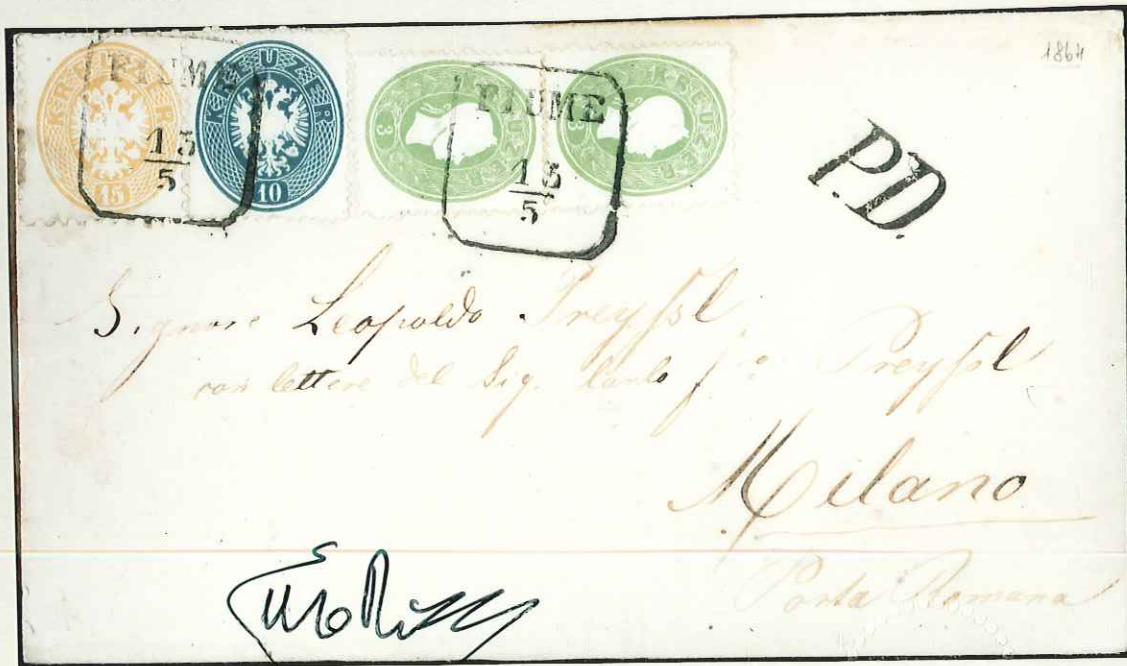 1864
KREUZER 15
KREUZER 10
3 KREUZER
3 KREUZER
FIUME
13
5
FIUME
13
5
P.D.
Signore Leopoldo Preyssl
con lettere del Sig. Carlo f.º Preyssl
Milano
Porta Romana